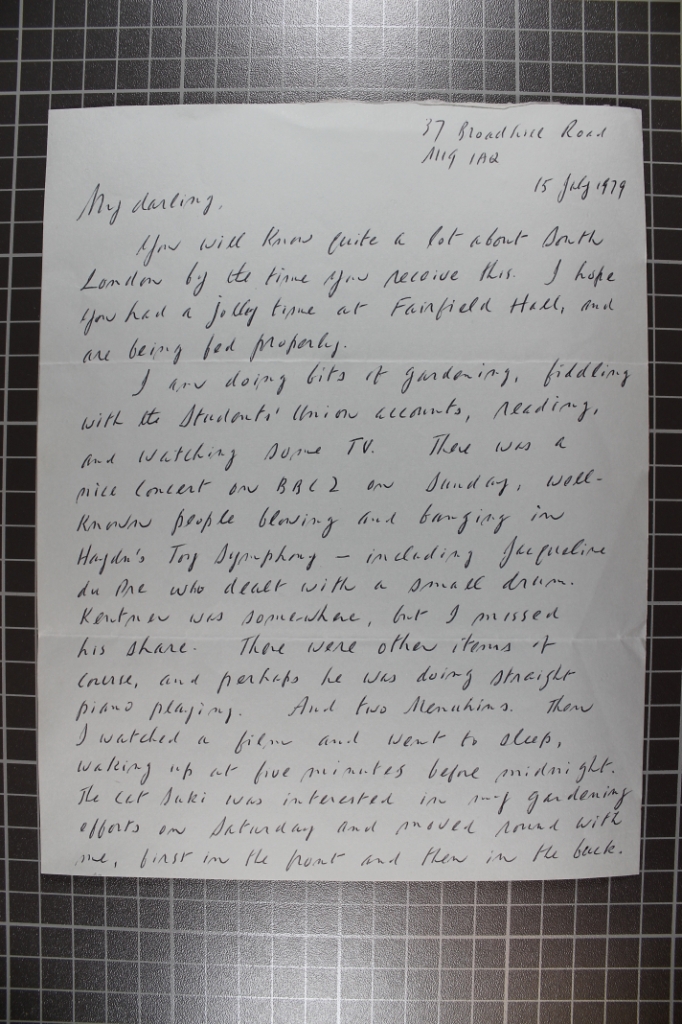 37 Broadhill Road
M19 1AQ
15 July 1979
My darling,
You will know quite a lot about South
London by the time you receive this. I hope
you had a jolly time at Fairfield Hall, and
are being fed properly.
I am doing bits of gardening, fiddling
with the Students' Union accounts, reading,
and watching some TV. There was a
nice concert on BBC2 on Sunday, well-
known people blowing and banging in
Haydn's Toy Symphony – including Jacqueline
du Pre who dealt with a small drum.
Kentner was somewhere, but I missed
his share. There were other items of
course, and perhaps he was doing straight
piano playing. And two Menuhins. Then
I watched a film and went to sleep,
waking up at five minutes before midnight.
The cat Suki was interested in my gardening
efforts on Saturday and moved round with
me, first in the front and then in the back.